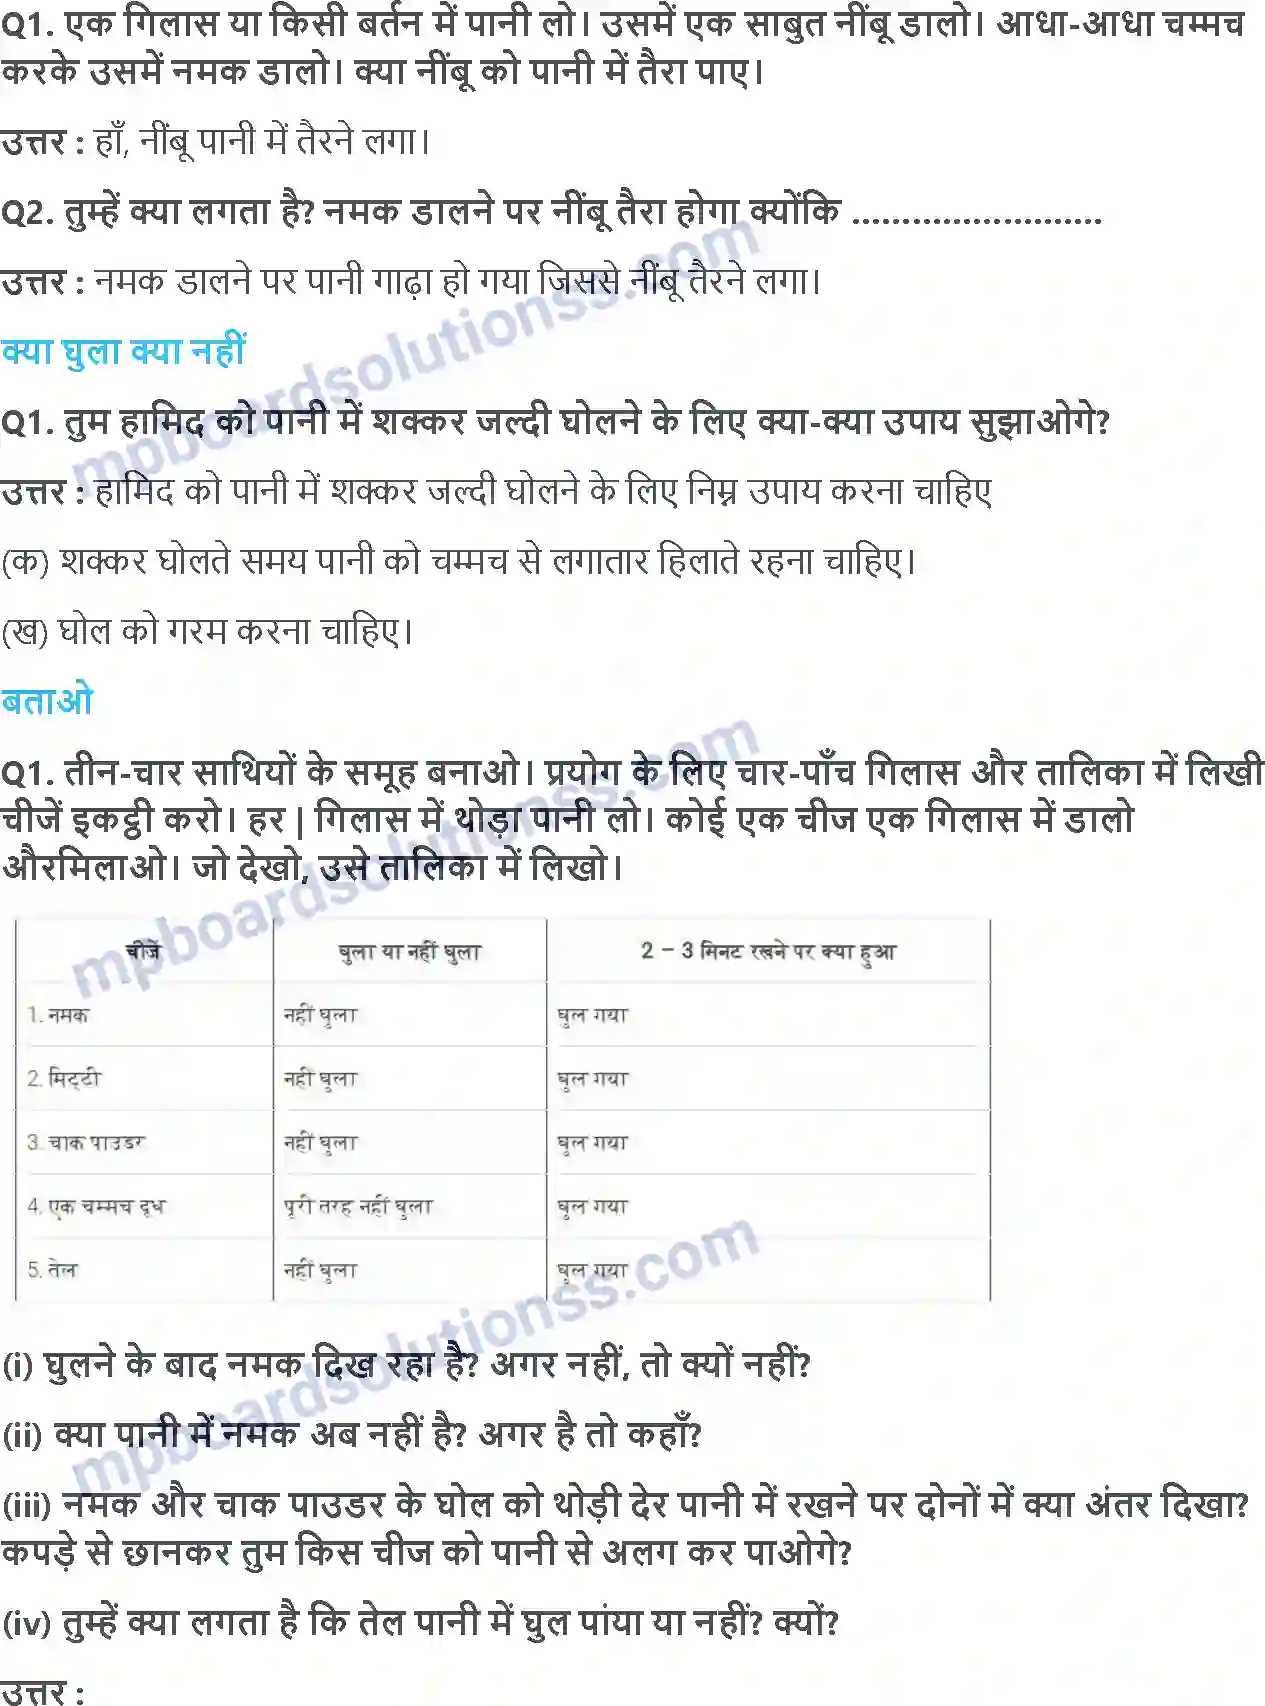 Q1. एक गिलास या किसी बर्तन में पानी लो। उसमें एक साबुत नींबू डालो। आधा-आधा चम्मच
करके उसमें नमक डालो। क्या नींबू को पानी में तैरा पाए।
उत्तर : हाँ, नींबू पानी में तैरने लगा।
Q2. तुम्हें क्या लगता है? नमक डालने पर नींबू तैरा होगा क्योंकि .........................
उत्तर : नमक डालने पर पानी गाढ़ा हो गया जिससे नींबू तैरने लगा।
क्या घुला क्या नहीं
Q1. तुम हामिद को पानी में शक्कर जल्दी घोलने के लिए क्या-क्या उपाय सुझाओगे?
उत्तर : हामिद को पानी में शक्कर जल्दी घोलने के लिए निम्न उपाय करना चाहिए
(क) शक्कर घोलते समय पानी को चम्मच से लगातार हिलाते रहना चाहिए।
(ख) घोल को गरम करना चाहिए।
बताओ
Q1. तीन-चार साथियों के समूह बनाओ। प्रयोग के लिए चार-पाँच गिलास और तालिका में लिखी
चीजें इकट्ठी करो। हर | गिलास में थोड़ा पानी लो। कोई एक चीज एक गिलास में डालो
औरमिलाओ। जो देखो, उसे तालिका में लिखो।
चीजें घुला या नहीं घुला 2 – 3 मिनट रखने पर क्या हुआ
1. नमक नहीं घुला घुल गया
2. मिट्टी नहीं घुला घुल गया
3. चाक पाउडर नहीं घुला घुल गया
4. एक चम्मच दूध पूरी तरह नहीं घुला घुल गया
5. तेल नहीं घुला घुल गया
(i) घुलने के बाद नमक दिख रहा है? अगर नहीं, तो क्यों नहीं?
(ii) क्या पानी में नमक अब नहीं है? अगर है तो कहाँ?
(iii) नमक और चाक पाउडर के घोल को थोड़ी देर पानी में रखने पर दोनों में क्या अंतर दिखा?
कपड़े से छानकर तुम किस चीज को पानी से अलग कर पाओगे?
(iv) तुम्हें क्या लगता है कि तेल पानी में घुल पांया या नहीं? क्यों?
उत्तर :
mpboardsolutionss.com
mpboardsolutionss.com
mpboardsolutionss.com